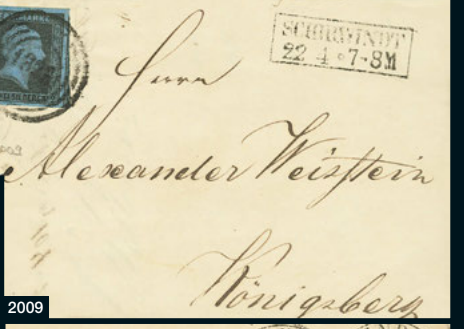 SCHIRWINDT
22 4 * 7-8M
Herrn
Alexander Weisstein
Königsberg
2009